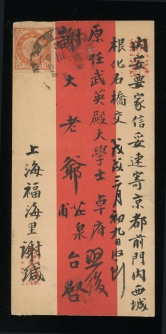 內安要家信妥速寄京都前門內西城
根化石橋交 戊戌三月初九日收到
原任武英殿大學士 卓府 照後
謝大老爺 甫 泉 台啓
上海福海里謝緘